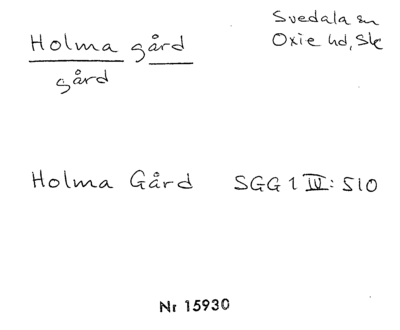 Holma gård
gård
Svedala sn
Oxie hd, Sk
Holma Gård SGG 1 IV: 510
Nr 15930